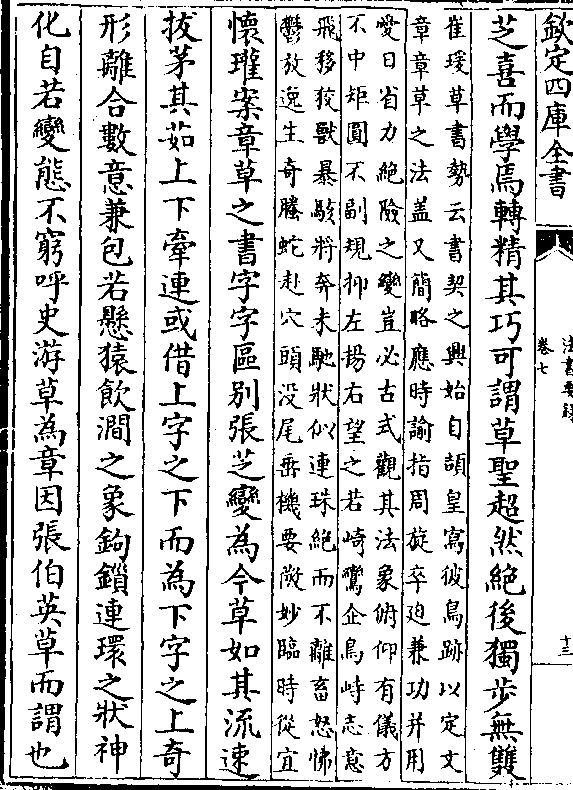 欽定四庫全書
法書要録
卷七
十三
芝喜而學焉轉精其巧可謂草聖超然絶後獨步無雙
崔瑗草書勢云書契之興始自頡皇寫彼鳥跡以定文
章章草之法蓋又簡略應時諭指周旋卒迫兼功并用
愛日省力絶險之變豈必古式觀其法象俯仰有儀方
不中矩圓不副規抑左揚右望之若崎鸞企鳥峙志意
飛移狡獸暴駭將奔未馳狀似連珠絶而不離畜怒怫
鬱放逸生奇騰蛇赴穴頭没尾垂機要微妙臨時從宜
懷瓘案章草之書字字區别張芝變為今草如其流速
拔茅其茹上下牽連或借上字之下而為下字之上奇
形離合數意兼包若懸猿飲澗之象鉤鎖連環之狀神
化自若變態不窮呼史游草為章因張伯英草而謂也